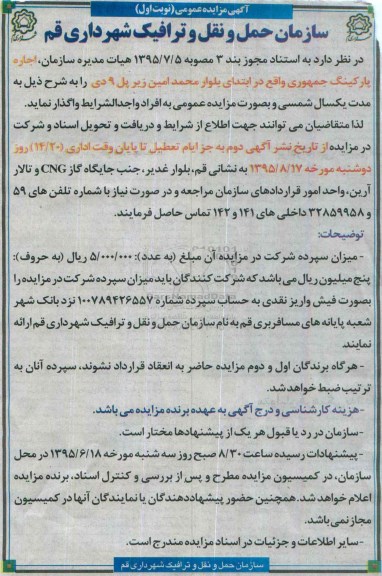 آگهی مزایده عمومی (نوبت اول)
سازمان حمل و نقل و ترافیک شهرداری قم
در نظر دارد به استناد مجوز بند ۳ مصوبه ۱۳۹۵/۷/۵ هیات مدیره سازمان، اجاره
پارکینگ جمهوری واقع در ابتدای بلوار محمد امین زیر پل ۹ دی را به شرح ذیل به
مدت یکسال شمسی و بصورت مزایده عمومی به افراد واجدالشرایط واگذار نماید.
لذا متقاضیان می توانند جهت اطلاع از شرایط و دریافت و تحویل اسناد و شرکت
در مزایده از تاریخ نشر آگهی دوم به جز ایام تعطیل تا پایان وقت اداری (۱۴/۲۰) روز
دوشنبه مورخه ۱۳۹۵/۸/۱۷ به نشانی قم، بلوار غدیر، جنب جایگاه گاز CNG و تالار
آرین، واحد امور قراردادهای سازمان مراجعه و در صورت نیاز با شماره تلفن های ۵۹
و ۳۲۸۵۹۹۵۸ داخلی های ۱۴۱ و ۱۴۲ تماس حاصل فرمایند.
توضیحات:
-میزان سپرده شرکت در مزایده آن مبلغ (به عدد): ۵/۰۰۰/۰۰۰ ریال (به حروف):
پنج میلیون ریال می باشد که شرکت کنندگان باید میزان سپرده شرکت در مزایده را
بصورت فیش واریز نقدی به حساب سپرده شماره ۱۰۰۷۸۹۴۲۶۵۵۷ نزد بانک شهر
شعبه پایانه های مسافربری قم به نام سازمان حمل و نقل و ترافیک شهرداری قم ارائه
نمایند.
-هرگاه برندگان اول و دوم مزایده حاضر به انعقاد قرارداد نشوند، سپرده آنان به
ترتیب ضبط خواهد شد.
-هزینه کارشناسی و درج آگهی به عهده برنده مزایده می باشد.
-سازمان در رد یا قبول هر یک از پیشنهادها مختار است.
-پیشنهادات رسیده ساعت ۸/۳۰ صبح روز سه شنبه مورخه ۱۳۹۵/۶/۱۸ در محل
سازمان، در کمیسیون مزایده مطرح و پس از بررسی و کنترل اسناد، برنده مزایده
اعلام خواهد شد. همچنین حضور پیشهاددهندگان یا نمایندگان آنها در کمیسیون
مجاز نمی باشد.
-سایر اطلاعات و جزئیات در اسناد مزایده مندرج است.
سازمان حمل و نقل و ترافیک شهرداری قم